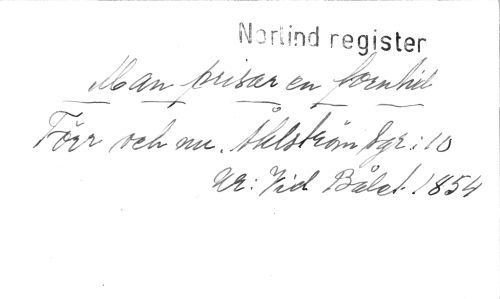 Norlind register
Man prisar en forntid
Förr och nu. Ahlström Sgr: 10
Ur: Vid Bålet. 1854